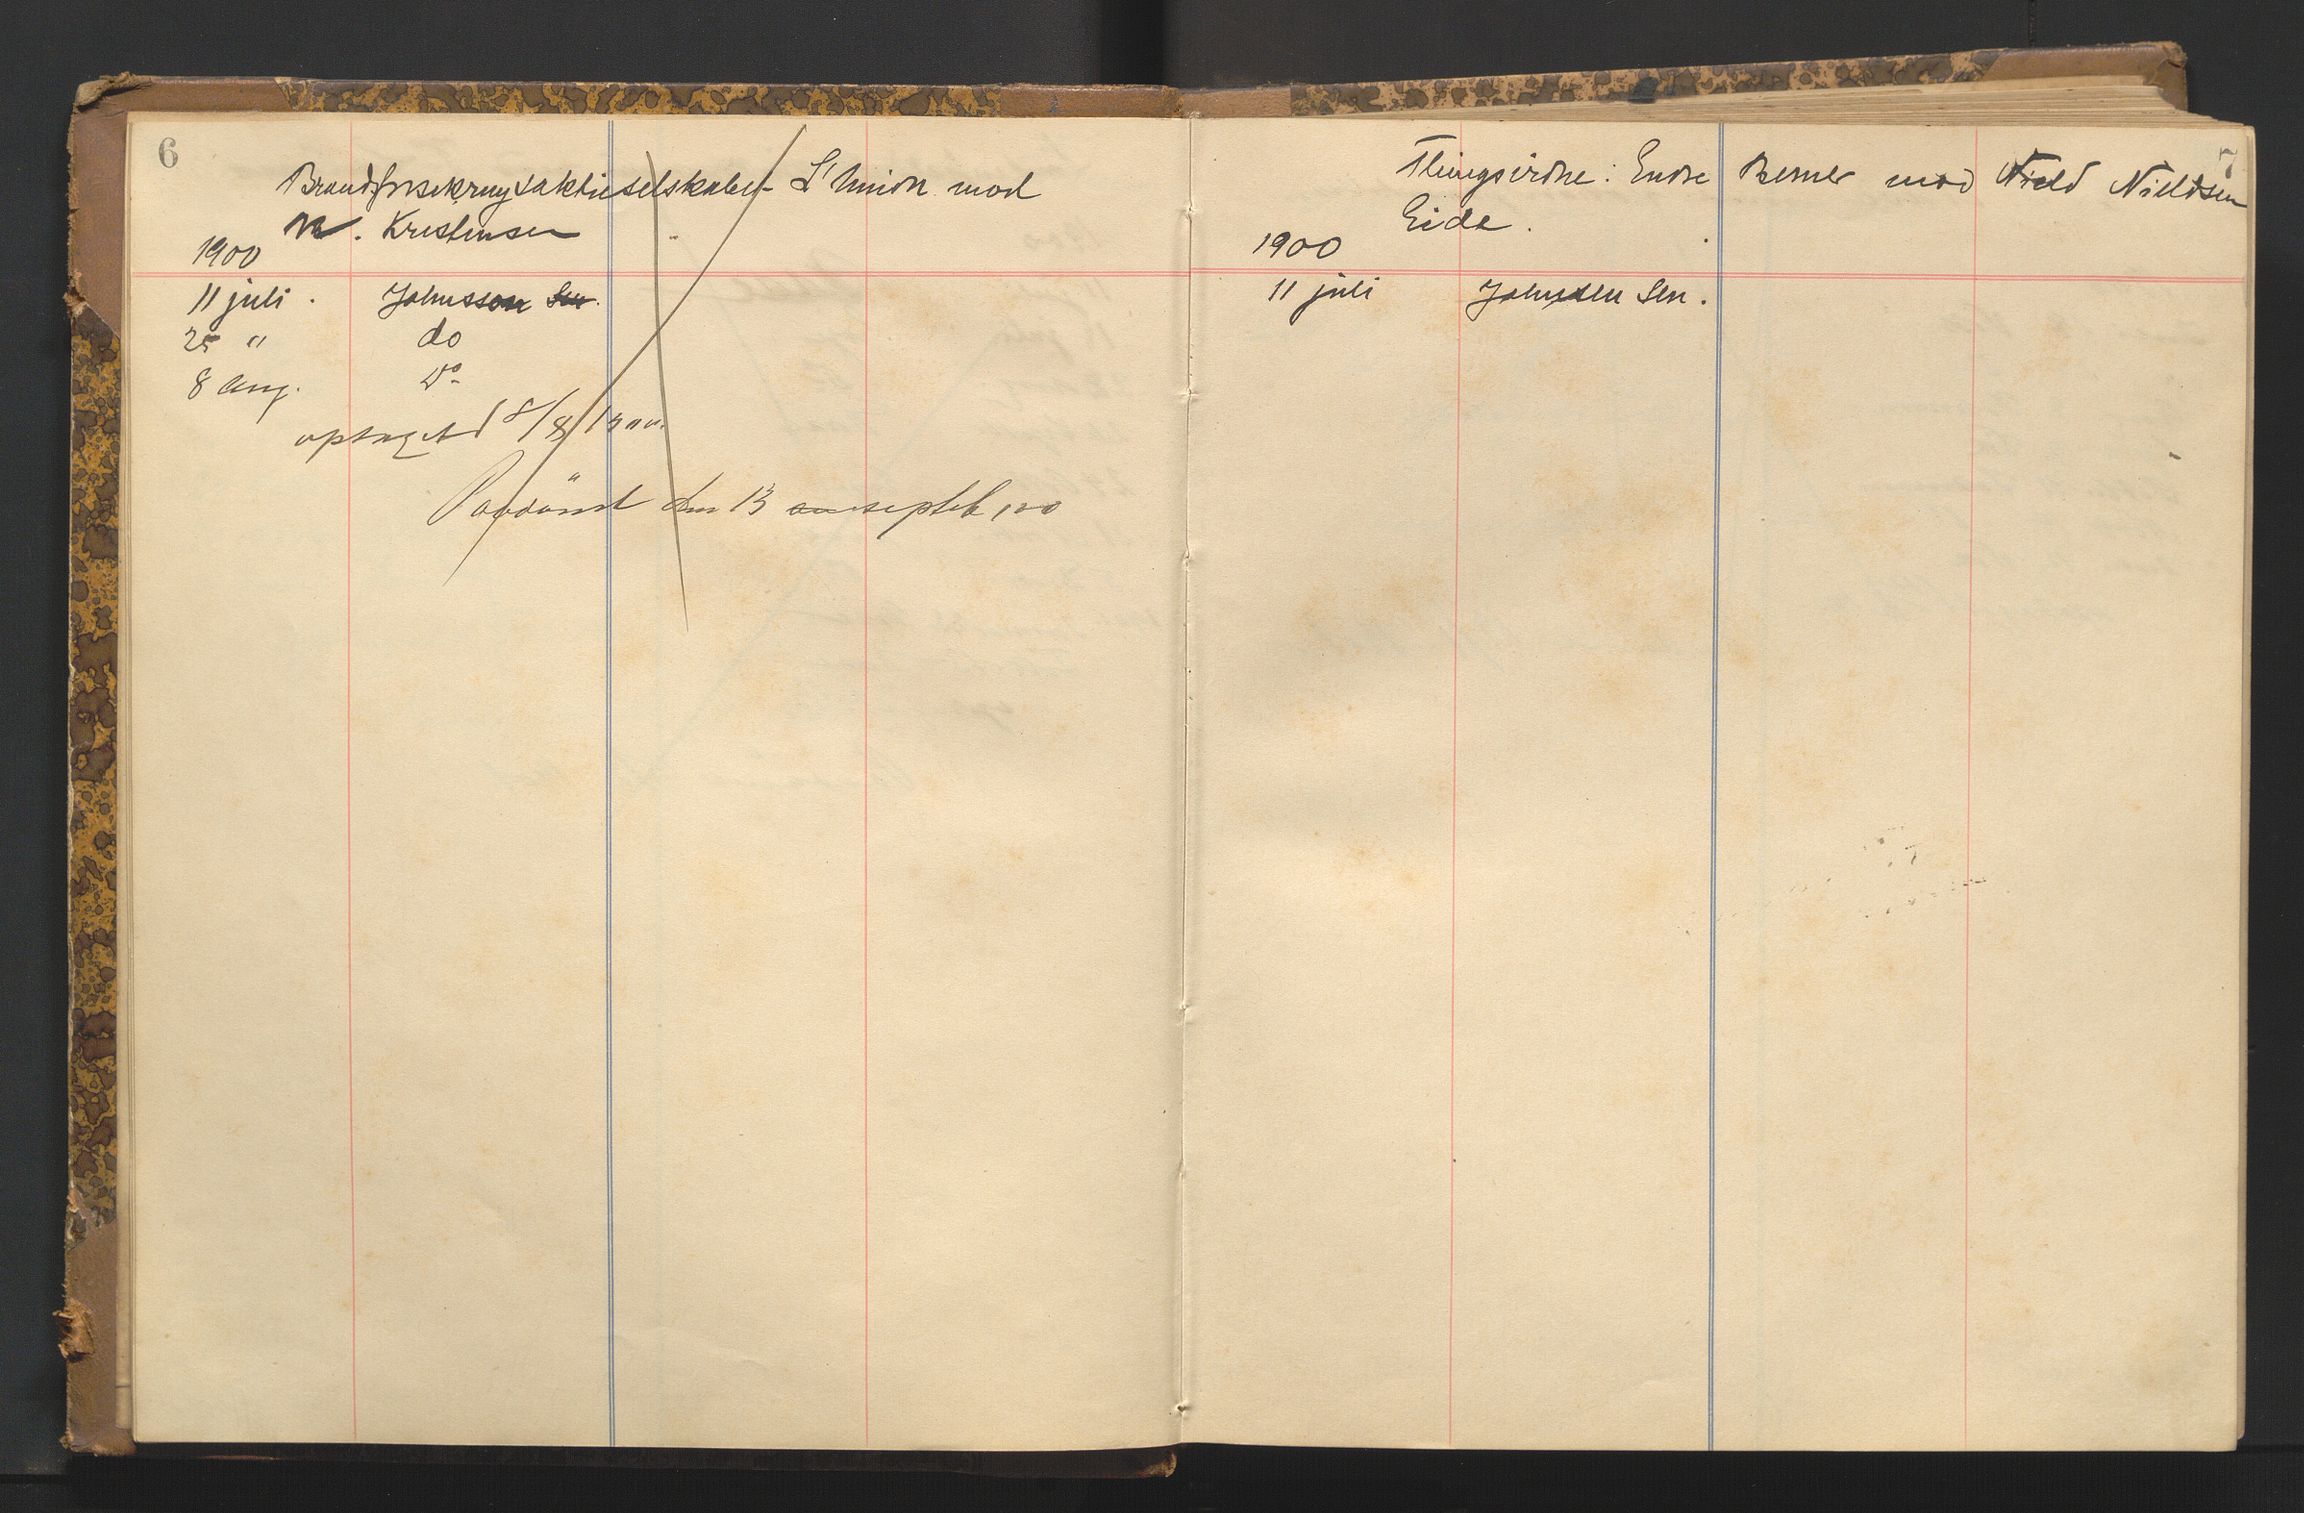 6
Brandforsikringsaktieselskabet L'Union mod
N. Kristensen
1900
11 juli . Johnsson Sen.
25 " do
8 Aug. Do
optaget 8/8 1900.
Paadömt den 13 septeb 1900
7
Thingsvidne: Endre mod Nield Nieldsen
Eide.
1900
11 juli Johnsen Sen.